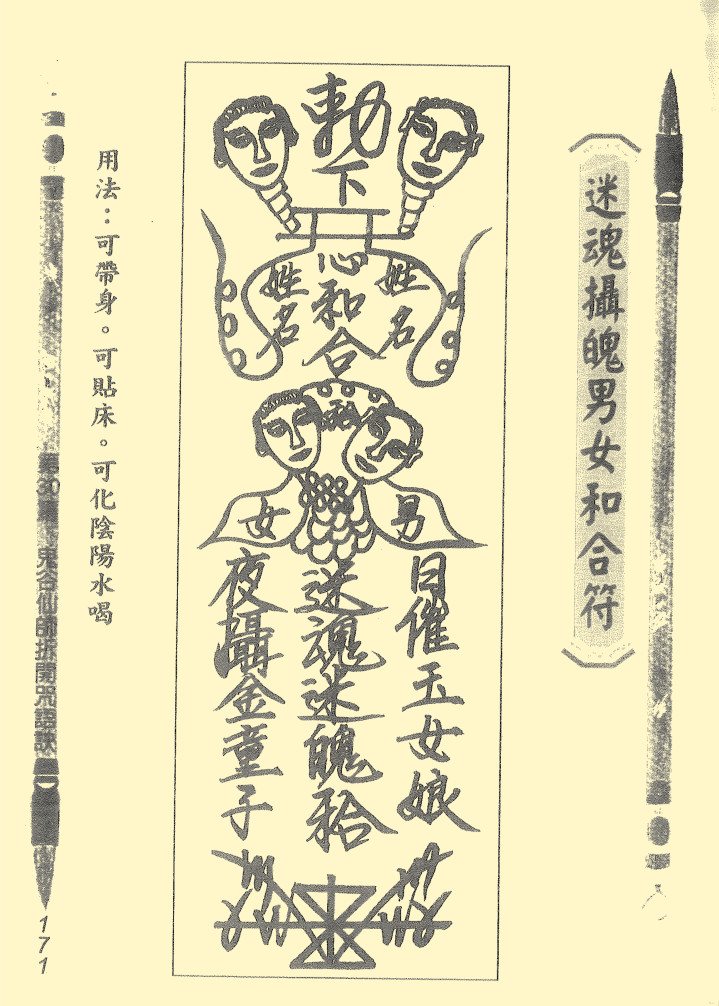 迷魂攝魄男女和合符
勅下
心和合
姓名
姓名
男
女
日催玉女娘
迷魂迷魄
夜攝金童子
用法：可帶身。可貼床。可化陰陽水喝
鬼谷仙師折開咒語訣
171